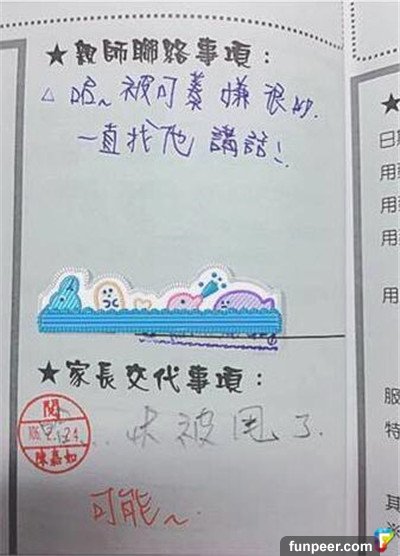 ★親師聯絡事項：
△ 哈~ 被可蓁嫌很吵.
一直找他講話!
★家長交代事項：
閱
陳嘉如
... 快被甩了.
可能~
★
用
用
用
用
服
特
其
funpeer.com